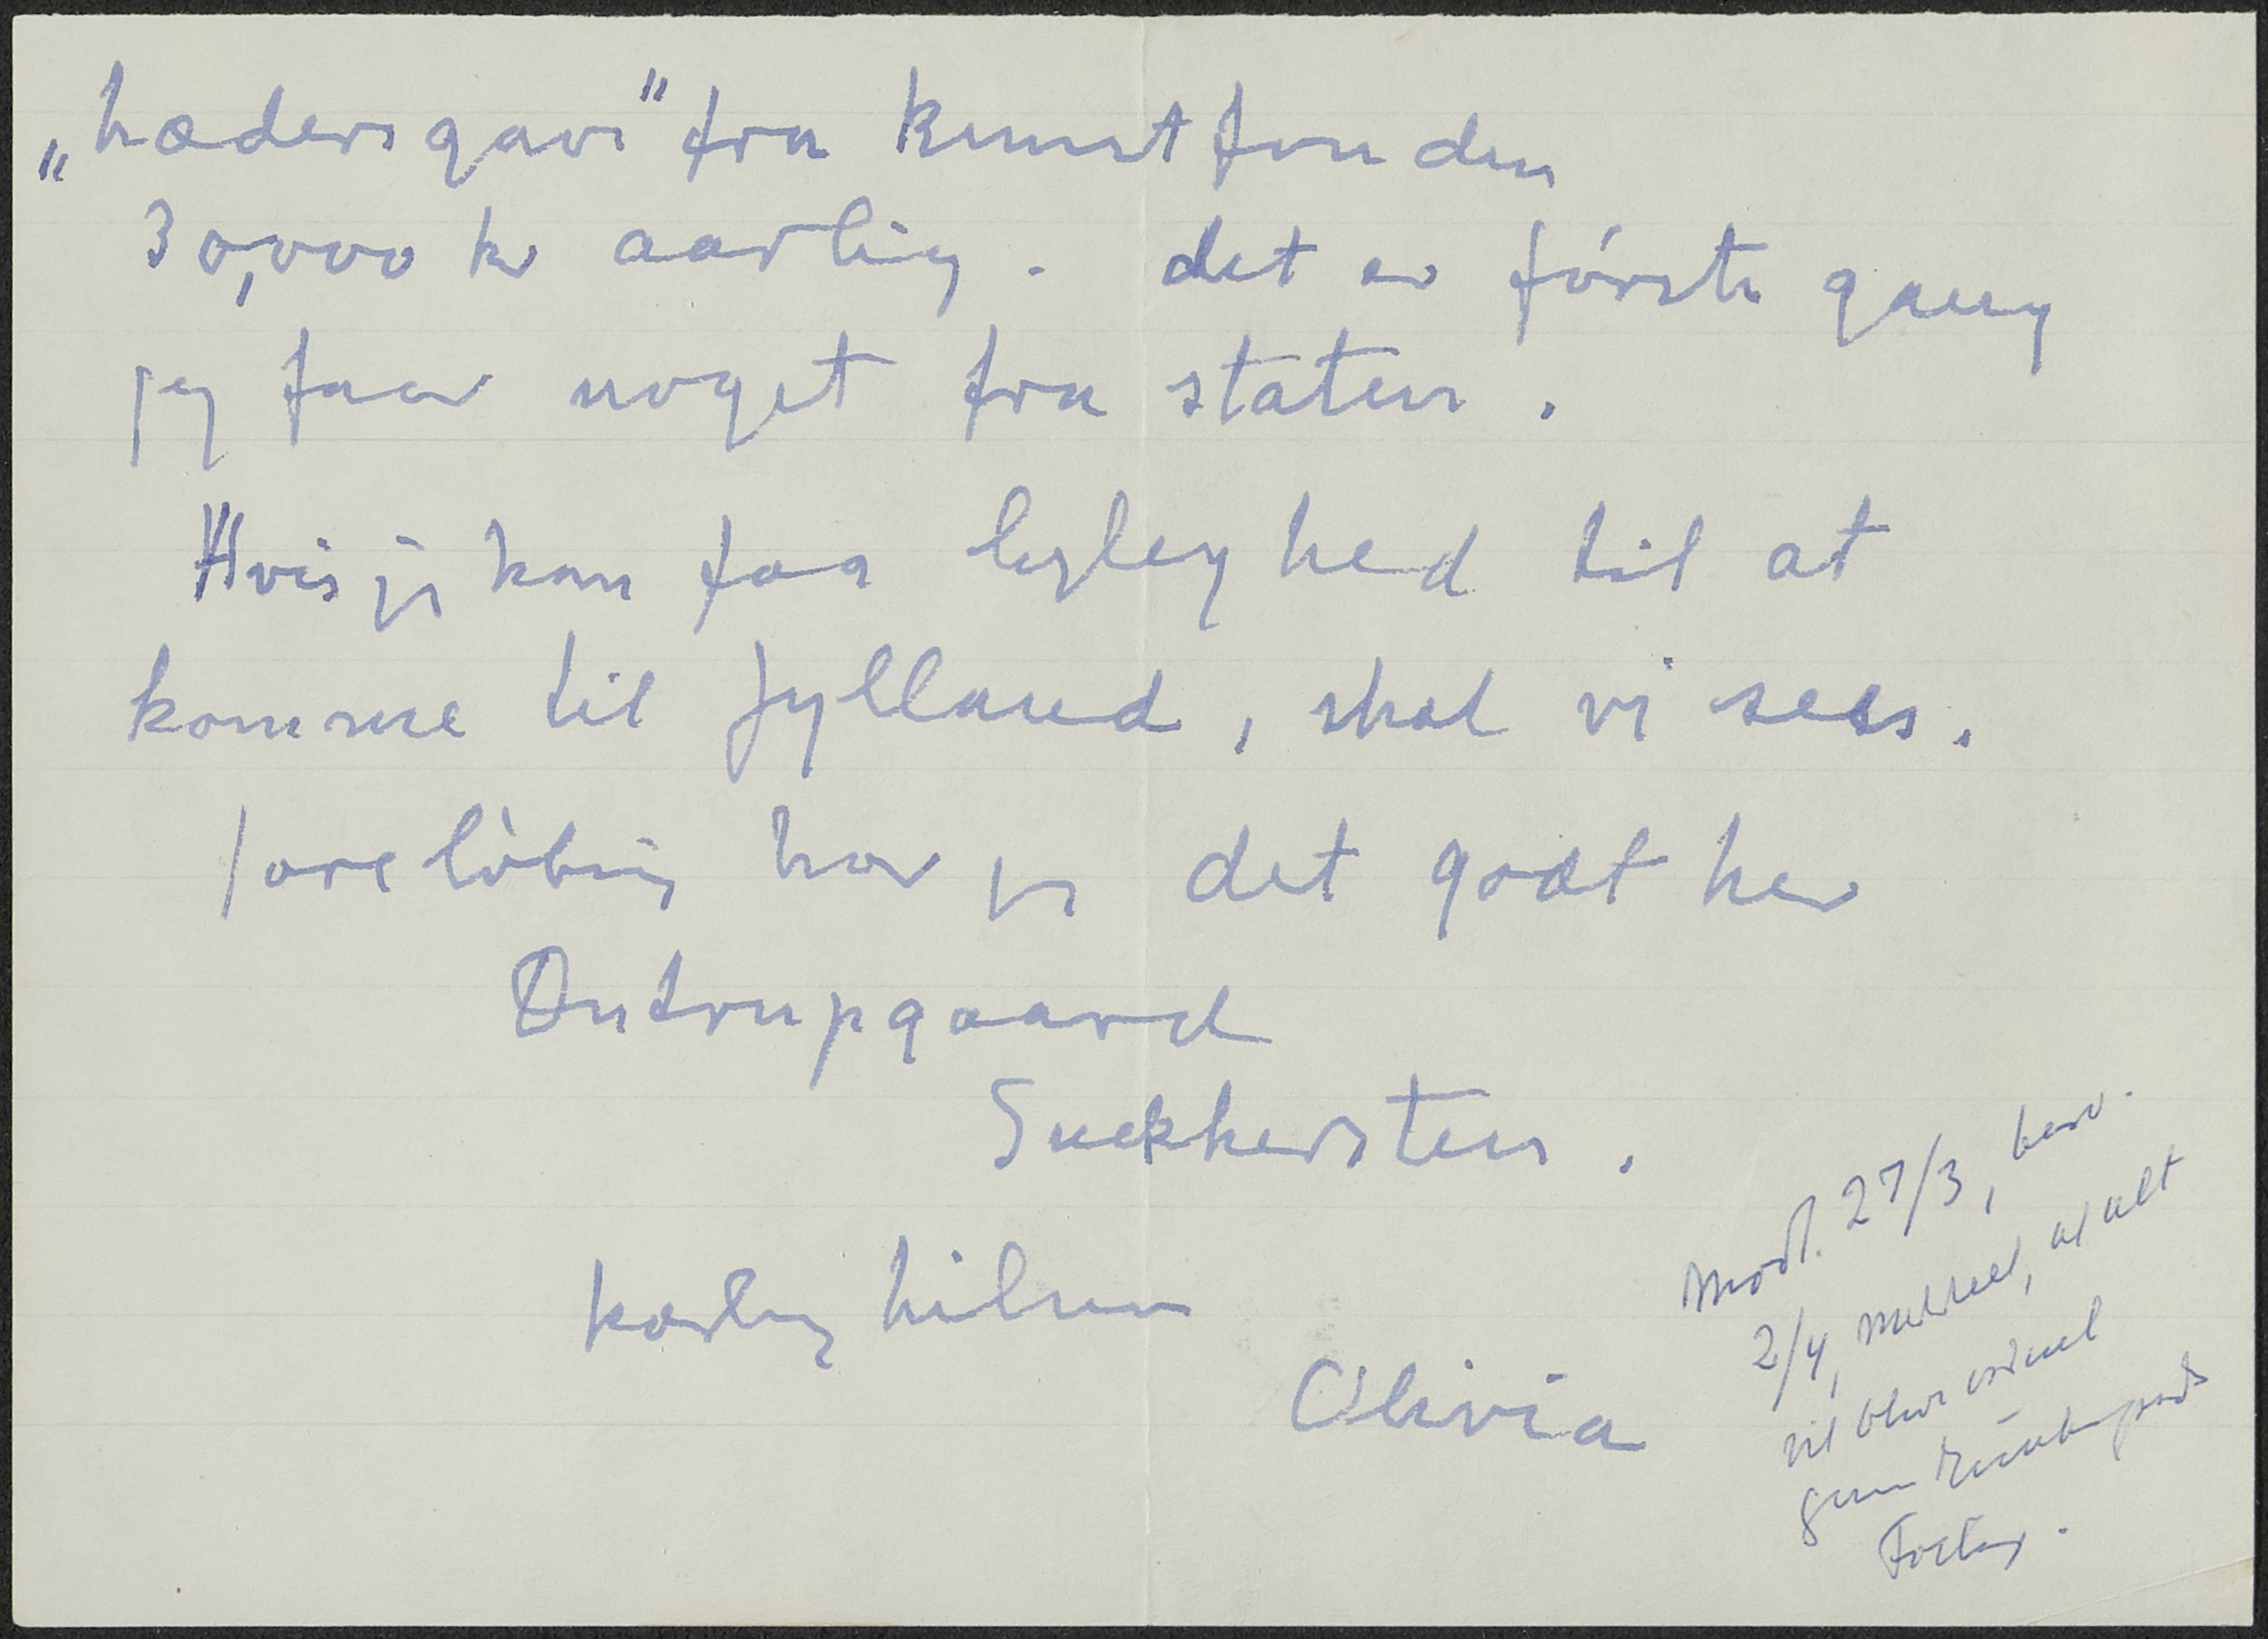 „hædersgave" fra kunstfonden
30,000 kr aarlig. det er første gang
jeg faar noget fra staten.
Hvis jeg kan faa leyleyhed til at
komme til Jylland, skal vi sees.
foreløbig har jeg det godt her
Ontrupgaard
Snekkersten.
kærlig hilsen
Olivia
Modt. 27/3, besv.
2/4, meddeel, at alt
vil blive ordnet
gennem
Forlag.